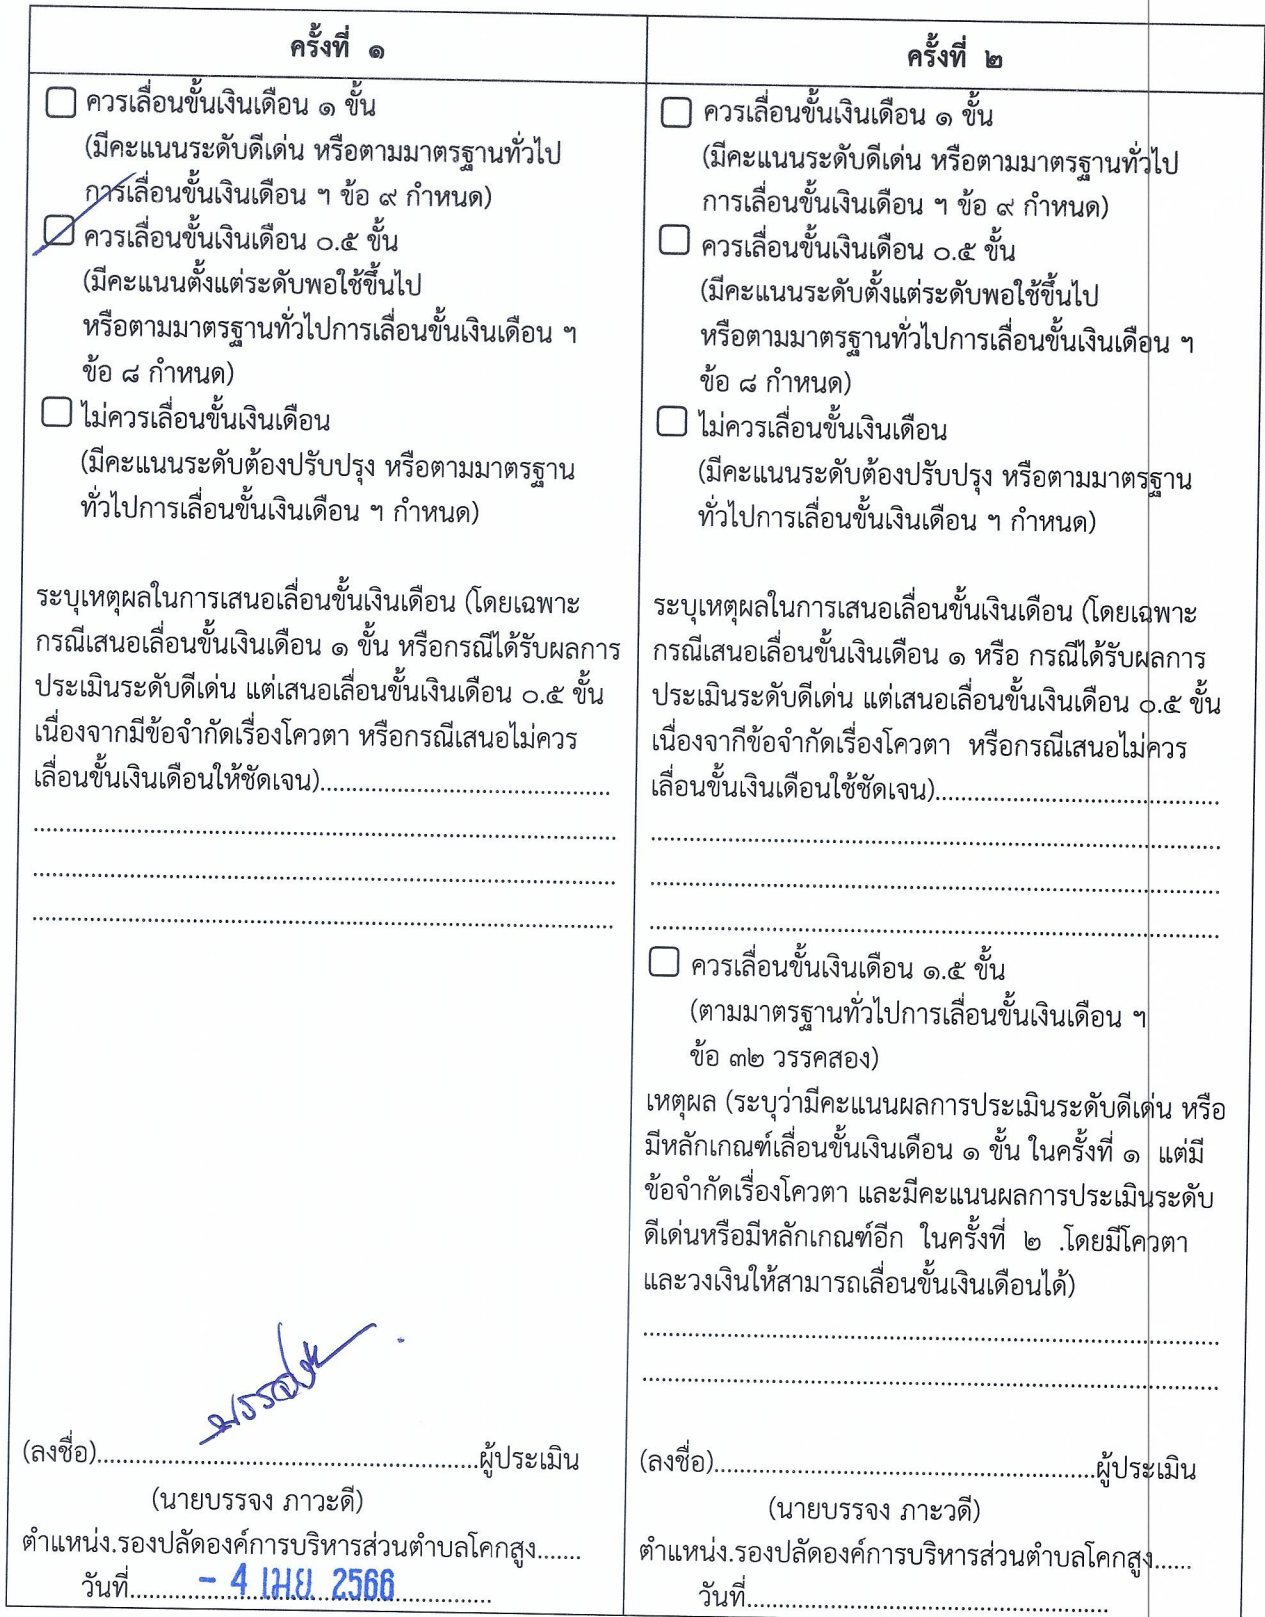 ครั้งที่ ๑
ควรเลื่อนขั้นเงินเดือน ๑ ขั้น
(มีคะแนนระดับดีเด่น หรือตามมาตรฐานทั่วไป
การเลื่อนขั้นเงินเดือน ฯ ข้อ ๙ กำหนด)
ควรเลื่อนขั้นเงินเดือน ๐.๕ ขั้น
(มีคะแนนตั้งแต่ระดับพอใช้ขึ้นไป
หรือตามมาตรฐานทั่วไปการเลื่อนขั้นเงินเดือน ฯ
ข้อ ๘ กำหนด)
ไม่ควรเลื่อนขั้นเงินเดือน
(มีคะแนนระดับต้องปรับปรุง หรือตามมาตรฐาน
ทั่วไปการเลื่อนขั้นเงินเดือน ฯ กำหนด)
ระบุเหตุผลในการเสนอเลื่อนขั้นเงินเดือน (โดยเฉพาะ
กรณีเสนอเลื่อนขั้นเงินเดือน ๑ ขั้น หรือกรณีได้รับผลการ
ประเมินระดับดีเด่น แต่เสนอเลื่อนขั้นเงินเดือน ๐.๕ ขั้น
เนื่องจากมีข้อจำกัดเรื่องโควตา หรือกรณีเสนอไม่ควร
เลื่อนขั้นเงินเดือนให้ชัดเจน)..........
บรรจง
(ลงชื่อ)..........ผู้ประเมิน
(นายบรรจง ภาวะดี)
ตำแหน่ง.รองปลัดองค์การบริหารส่วนตำบลโคกสูง.......
วันที่.......... - 4 เม.ย. 2566
ครั้งที่ ๒
ควรเลื่อนขั้นเงินเดือน ๑ ขั้น
(มีคะแนนระดับดีเด่น หรือตามมาตรฐานทั่วไป
การเลื่อนขั้นเงินเดือน ฯ ข้อ ๙ กำหนด)
ควรเลื่อนขั้นเงินเดือน ๐.๕ ขั้น
(มีคะแนนระดับตั้งแต่ระดับพอใช้ขึ้นไป
หรือตามมาตรฐานทั่วไปการเลื่อนขั้นเงินเดือน ฯ
ข้อ ๘ กำหนด)
ไม่ควรเลื่อนขั้นเงินเดือน
(มีคะแนนระดับต้องปรับปรุง หรือตามมาตรฐาน
ทั่วไปการเลื่อนขั้นเงินเดือน ฯ กำหนด)
ระบุเหตุผลในการเสนอเลื่อนขั้นเงินเดือน (โดยเฉพาะ
กรณีเสนอเลื่อนขั้นเงินเดือน ๑ หรือ กรณีได้รับผลการ
ประเมินระดับดีเด่น แต่เสนอเลื่อนขั้นเงินเดือน ๐.๕ ขั้น
เนื่องจากีข้อจำกัดเรื่องโควตา หรือกรณีเสนอไม่ควร
เลื่อนขั้นเงินเดือนใช้ชัดเจน)..........
ควรเลื่อนขั้นเงินเดือน ๑.๕ ขั้น
(ตามมาตรฐานทั่วไปการเลื่อนขั้นเงินเดือน ฯ
ข้อ ๓๒ วรรคสอง)
เหตุผล (ระบุว่ามีคะแนนผลการประเมินระดับดีเด่น หรือ
มีหลักเกณฑ์เลื่อนขั้นเงินเดือน ๑ ขั้น ในครั้งที่ ๑ แต่มี
ข้อจำกัดเรื่องโควตา และมีคะแนนผลการประเมินระดับ
ดีเด่นหรือมีหลักเกณฑ์อีก ในครั้งที่ ๒ .โดยมีโควตา
และวงเงินให้สามารถเลื่อนขั้นเงินเดือนได้)
(ลงชื่อ)..........ผู้ประเมิน
(นายบรรจง ภาะวดี)
ตำแหน่ง.รองปลัดองค์การบริหารส่วนตำบลโคกสูง......
วันที่..........